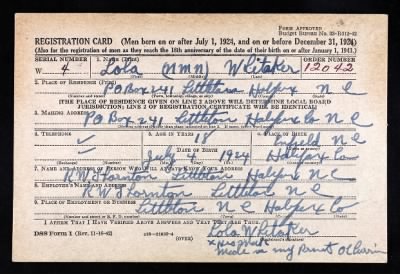 FORM APPROVED
Budget Bureau No. 33-R012-42
REGISTRATION CARD (Men born on or after July 1, 1924, and on or before December 31, 1924)
(Also for the registration of men as they reach the 18th anniversary of the date of their birth on or after January 1, 1943.)
SERIAL NUMBER 1. NAME (Print) ORDER NUMBER
W 4 Lola (NMN) Whitaker 12042
(First) (Middle) (Last)
2. PLACE OF RESIDENCE (Print)
PO Box 241 Littleton Halifax N C
(Number and street) (Town, township, village, or city) (County) (State)
[THE PLACE OF RESIDENCE GIVEN ON LINE 2 ABOVE WILL DETERMINE LOCAL BOARD
JURISDICTION; LINE 2 OF REGISTRATION CERTIFICATE WILL BE IDENTICAL]
3. MAILING ADDRESS
PO Box 241 Littleton Halifax Co N C
4. TELEPHONE 5. AGE IN YEARS 6. PLACE OF BIRTH
18
DATE OF BIRTH
July 4 1924 Halifax Co
7. NAME AND ADDRESS OF PERSON WHO WILL ALWAYS KNOW YOUR ADDRESS
R.W. Thornton Littleton Halifax N C
8. EMPLOYER'S NAME AND ADDRESS
R.W. Thornton Littleton N C
9. PLACE OF EMPLOYMENT OR BUSINESS
Littleton Halifax Co N C
(Number and street or R. F. D. number) (Town) (County) (State)
I AFFIRM THAT I HAVE VERIFIED ABOVE ANSWERS AND THAT THEY ARE TRUE.
DSS Form 1 (Rev. 11-16-42) (OVER)
Lola Whitaker
x his mark
made in my